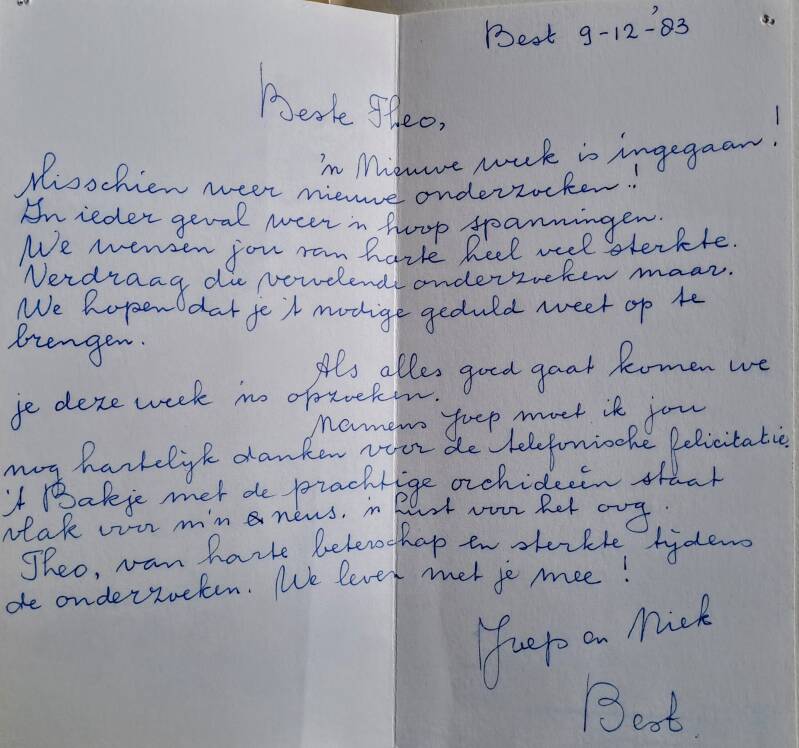 Best 9-12-'83
Beste Theo,
'n Nieuwe week is ingegaan!
Misschien weer nieuwe onderzoeken!
In ieder geval weer 'n hoop spanningen.
We wensen jou van harte heel veel sterkte.
Verdraag die vervelende onderzoeken maar.
We hopen dat je 't nodige geduld weet op te
brengen.
Als alles goed gaat komen we
je deze week 'ns opzoeken.
Namens Joep moet ik jou
nog hartelijk danken voor de telefonische felicitatie.
't Bakje met de prachtige orchideeën staat
vlak voor m'n neus. 'n lust voor het oog.
Theo, van harte beterschap en sterkte tijdens
de onderzoeken. We leven met je mee!
Joep en Riek
Best.